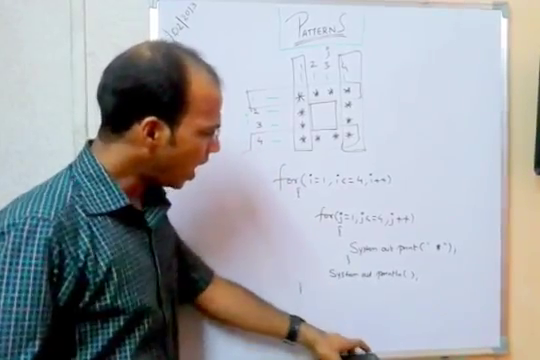 /02/2013
PATTERNS
j
1 2 3 4
1 * * * *
2 * *
3 * *
4 * * * *
for(i=1,i<=4,i++)
{
for(j=1,j<=4,j++)
{
System out print(" * ");
}
System out println();
}